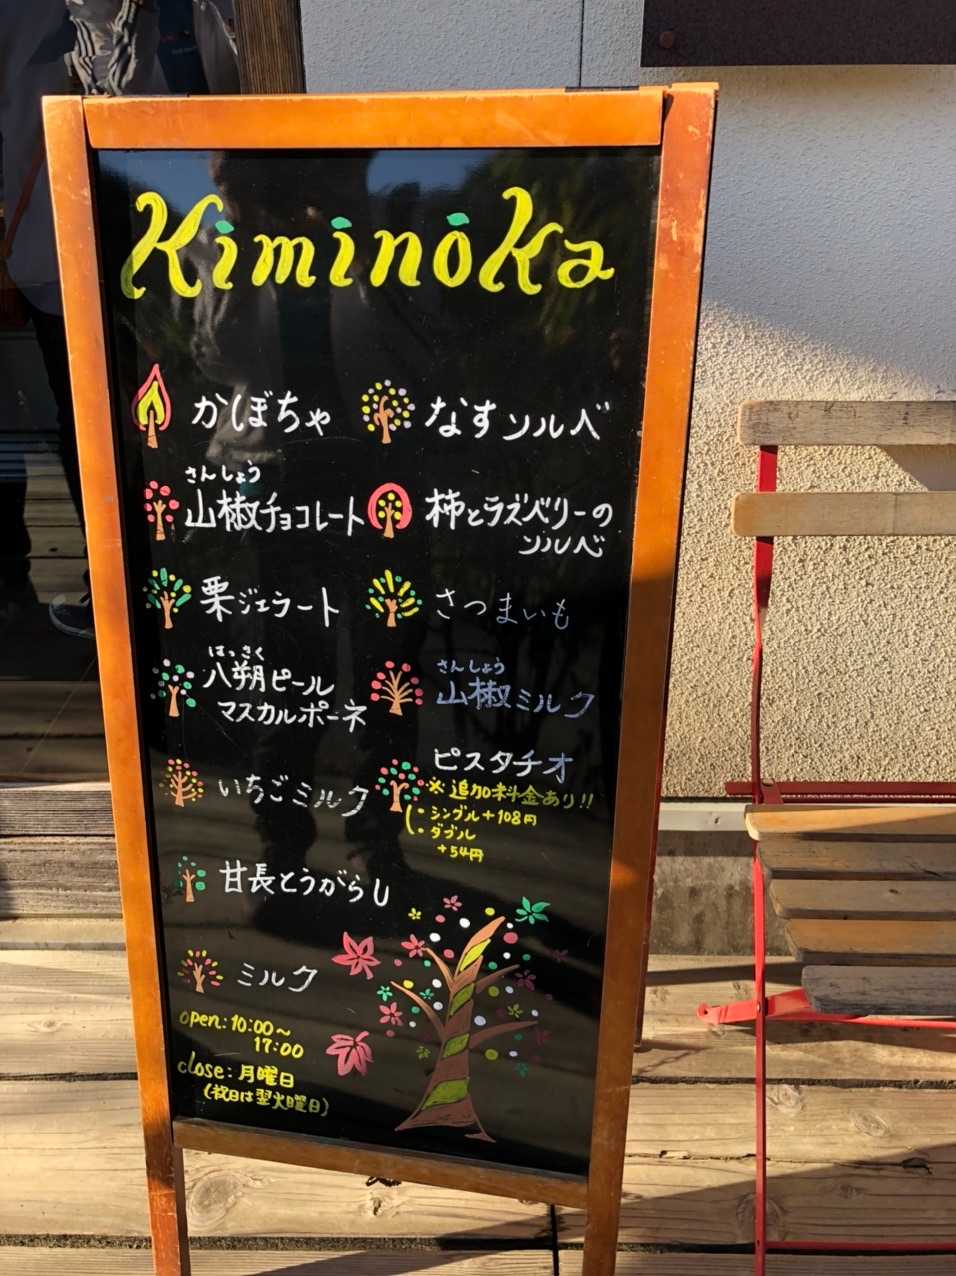 Kiminoka
かぼちゃ
さんしょう
山椒チョコレート
栗ジェラート
はっさく
八朔ピール
マスカルポーネ
いちごミルク
甘長とうがらし
ミルク
なすソルベ
柿とラズベリーの
ソルベ
さつまいも
さんしょう
山椒ミルク
ピスタチオ
※追加料金あり!!
・シングル+108円
・ダブル
+54円
open:10:00~
17:00
close:月曜日
(祝日は翌火曜日)